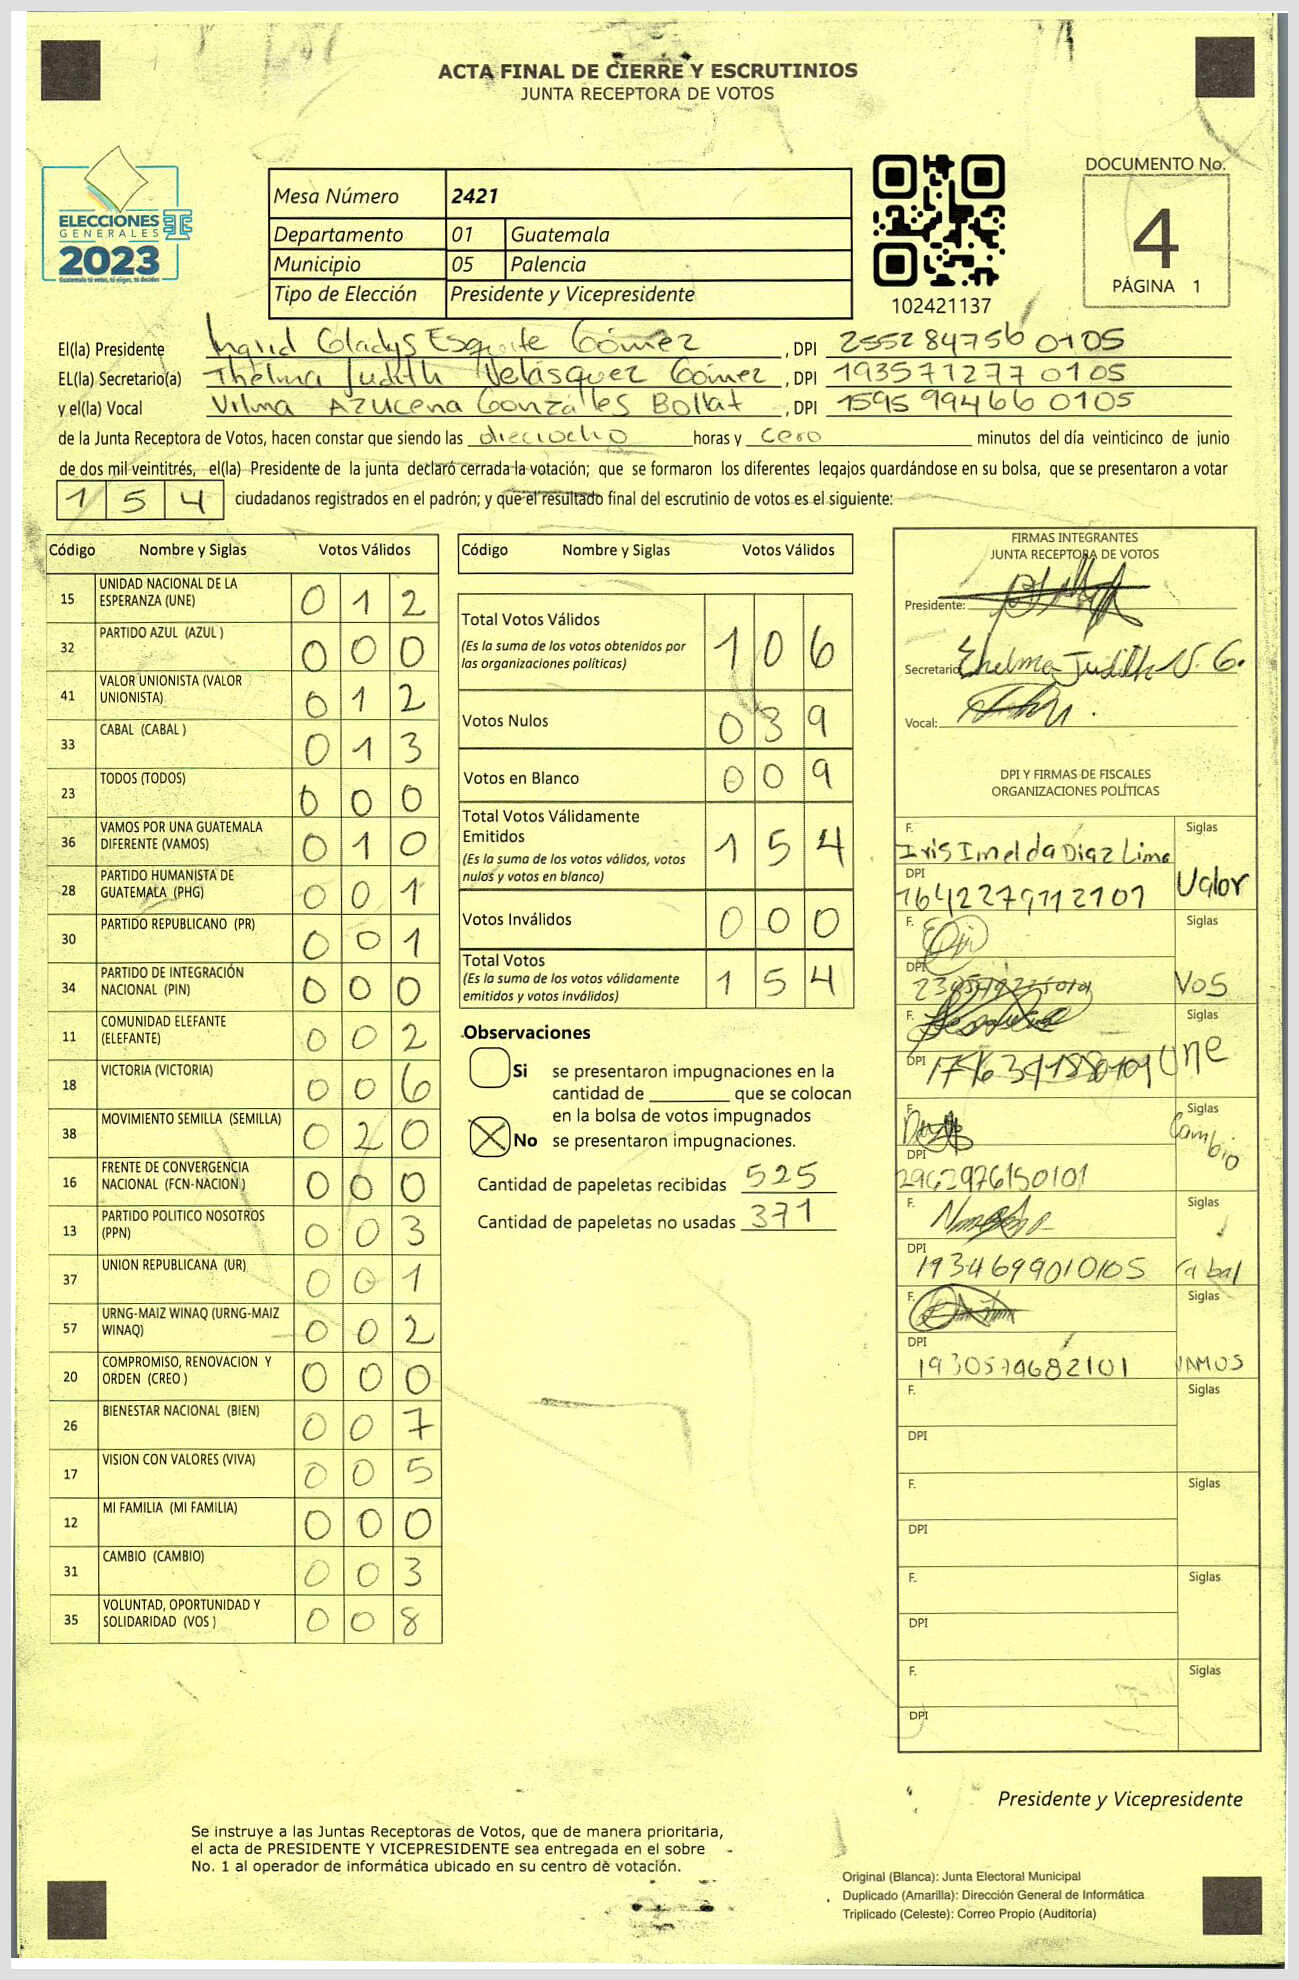 ACTA FINAL DE CIERRE Y ESCRUTINIOS
JUNTA RECEPTORA DE VOTOS
ELECCIONES
GENERALES
2023
Guatemala tú votas, tú eliges, tú decides
Mesa Número 2421
Departamento 01 Guatemala
Municipio 05 Palencia
Tipo de Elección Presidente y Vicepresidente
102421137
DOCUMENTO No.
4
PÁGINA 1
El(la) Presidente Ingrid Gladys Esquite Gómez , DPI 2552 84756 0105
EL(la) Secretario(a) Thelma Judith Velásquez Gómez , DPI 193571277 0105
y el(la) Vocal Vilma Azucena Gonzáles Bollat , DPI 1595 99466 0105
de la Junta Receptora de Votos, hacen constar que siendo las dieciocho horas y cero minutos del día veinticinco de junio
de dos mil veintitrés, el(la) Presidente de la junta declaró cerrada la votación; que se formaron los diferentes legajos guardándose en su bolsa, que se presentaron a votar
154 ciudadanos registrados en el padrón; y que el resultado final del escrutinio de votos es el siguiente:
Código Nombre y Siglas Votos Válidos
15 UNIDAD NACIONAL DE LA ESPERANZA (UNE) 012
32 PARTIDO AZUL (AZUL ) 000
41 VALOR UNIONISTA (VALOR UNIONISTA) 012
33 CABAL (CABAL ) 013
23 TODOS (TODOS) 000
36 VAMOS POR UNA GUATEMALA DIFERENTE (VAMOS) 010
28 PARTIDO HUMANISTA DE GUATEMALA (PHG) 001
30 PARTIDO REPUBLICANO (PR) 001
34 PARTIDO DE INTEGRACIÓN NACIONAL (PIN) 000
11 COMUNIDAD ELEFANTE (ELEFANTE) 002
18 VICTORIA (VICTORIA) 006
38 MOVIMIENTO SEMILLA (SEMILLA) 020
16 FRENTE DE CONVERGENCIA NACIONAL (FCN-NACION ) 000
13 PARTIDO POLITICO NOSOTROS (PPN) 003
37 UNION REPUBLICANA (UR) 001
57 URNG-MAIZ WINAQ (URNG-MAIZ WINAQ) 002
20 COMPROMISO, RENOVACION Y ORDEN (CREO ) 000
26 BIENESTAR NACIONAL (BIEN) 007
17 VISION CON VALORES (VIVA) 005
12 MI FAMILIA (MI FAMILIA) 000
31 CAMBIO (CAMBIO) 003
35 VOLUNTAD, OPORTUNIDAD Y SOLIDARIDAD (VOS ) 008
Código Nombre y Siglas Votos Válidos
Total Votos Válidos 106
(Es la suma de los votos obtenidos por
las organizaciones políticas)
Votos Nulos 039
Votos en Blanco 009
Total Votos Válidamente
Emitidos 154
(Es la suma de los votos válidos, votos
nulos y votos en blanco)
Votos Inválidos 000
Total Votos 154
(Es la suma de los votos válidamente
emitidos y votos inválidos)
Observaciones
Si se presentaron impugnaciones en la
cantidad de ________ que se colocan
en la bolsa de votos impugnados
No se presentaron impugnaciones.
Cantidad de papeletas recibidas 525
Cantidad de papeletas no usadas 371
FIRMAS INTEGRANTES
JUNTA RECEPTORA DE VOTOS
Presidente:
Secretario Thelma Judith V. G.
Vocal:
DPI Y FIRMAS DE FISCALES
ORGANIZACIONES POLÍTICAS
F. Iris Imelda Diaz Lima Siglas
DPI 1642279112101 Valor
F. Siglas
DPI VOS
F. Siglas
DPI Une
F. Siglas
DPI 2962976150101 Cambio
F. Siglas
DPI 1934699010105 Cabal
F. Siglas
DPI 1930579682101 VAMOS
F. Siglas
DPI
F. Siglas
DPI
F. Siglas
DPI
F. Siglas
DPI
Presidente y Vicepresidente
Se instruye a las Juntas Receptoras de Votos, que de manera prioritaria,
el acta de PRESIDENTE Y VICEPRESIDENTE sea entregada en el sobre
No. 1 al operador de informática ubicado en su centro de votación.
Original (Blanca): Junta Electoral Municipal
Duplicado (Amarilla): Dirección General de Informática
Triplicado (Celeste): Correo Propio (Auditoría)